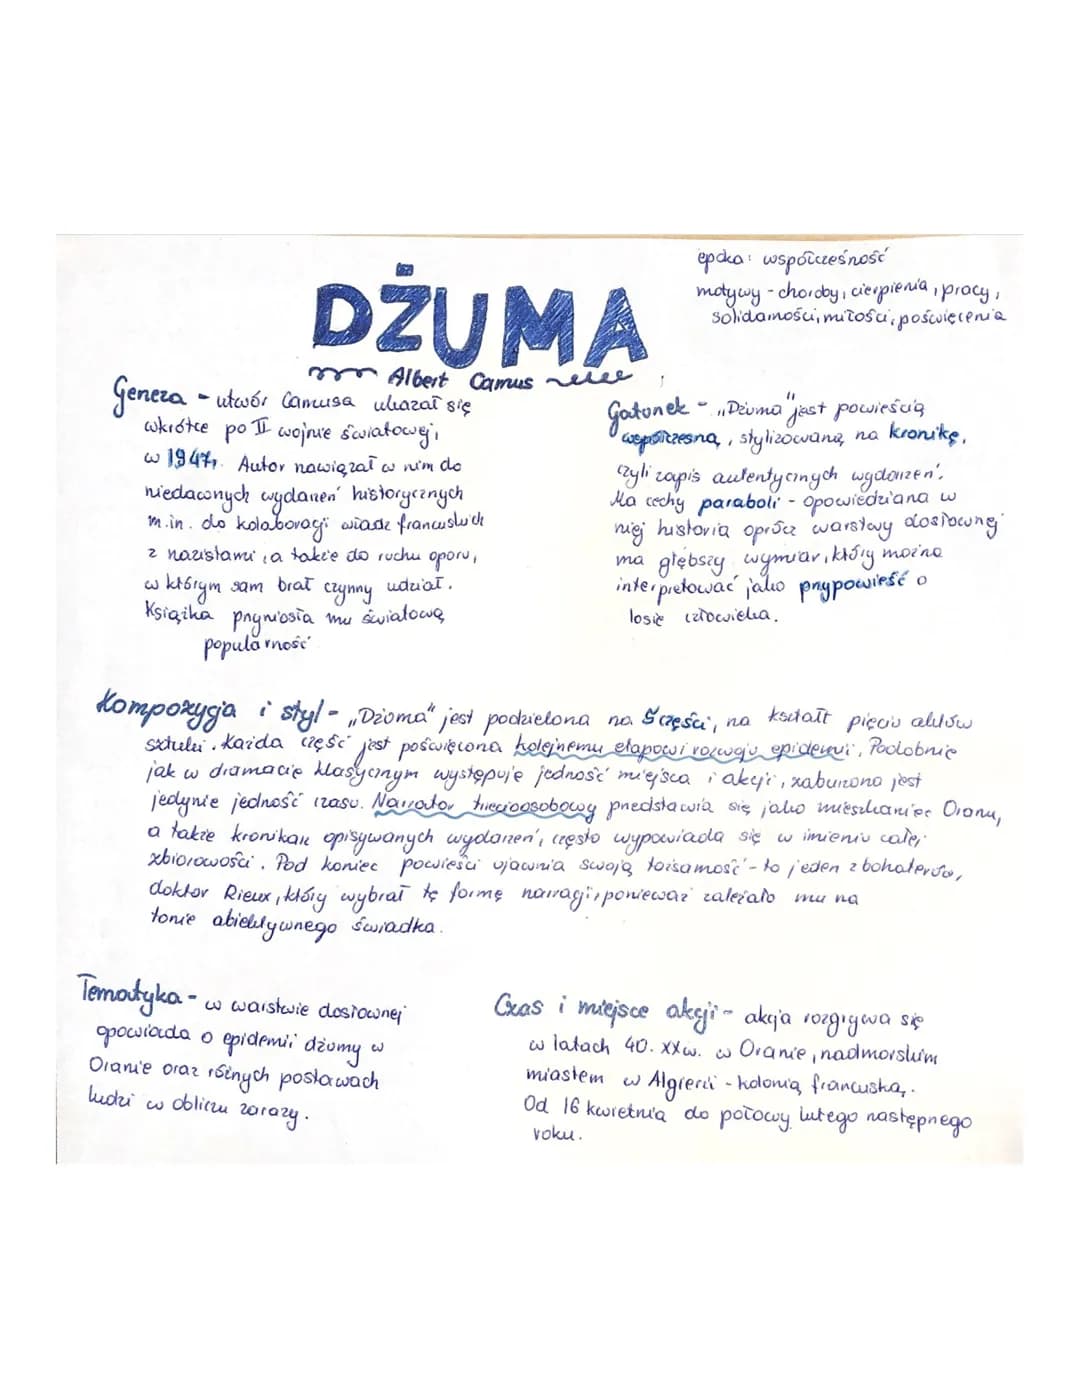 epoka: współczesność
motywy - choroby, cierpienia, pracy,
solidarności, miłości, poświęcenia
DŻUMA
Albert Camus
Geneza - utwór Camusa ukazał się
wkrótce po II wojnie światowej,
w 1947r. Autor nawiązał w nim do
niedawnych wydarzeń historycznych
m.in. do kolaboracji władz francuskich
z nazistami, a także do ruchu oporu,
w którym sam brał czynny udział.
Książka przyniosła mu światową
popularność
Gatunek - „Dżuma" jest powieścią
współczesną, stylizowaną na kronikę,
czyli zapis autentycznych wydarzeń.
Ma cechy paraboli - opowiedziana w
niej historia oprócz warstwy dosłownej
ma głębszy wymiar, który można
interpretować jako przypowieść o
losie człowieka.
Kompozycja i styl - „Dżuma" jest podzielona na 5 części, na kształt pięciu aktów
sztuki. Każda część jest poświęcona kolejnemu etapowi rozwoju epidemii. Podobnie
jak w dramacie klasycznym występuje jedność miejsca i akcji, zaburzona jest
jedynie jedność czasu. Narrator trzecioosobowy przedstawia się jako mieszkaniec Oranu,
a także kronikarz opisywanych wydarzeń, często wypowiada się w imieniu całej
zbiorowości. Pod koniec powieści ujawnia swoją tożsamość - to jeden z bohaterów,
doktor Rieux, który wybrał tę formę narracji, ponieważ zależało mu na
tonie obiektywnego świadka.
Tematyka - w warstwie dosłownej
opowiada o epidemii dżumy w
Oranie oraz różnych postawach
ludzi w obliczu zarazy.
Czas i miejsce akcji - akcja rozgrywa się
w latach 40. XX w. w Oranie, nadmorskim
miastem w Algierii - kolonią francuską.
Od 16 kwietnia do połowy lutego następnego
roku.